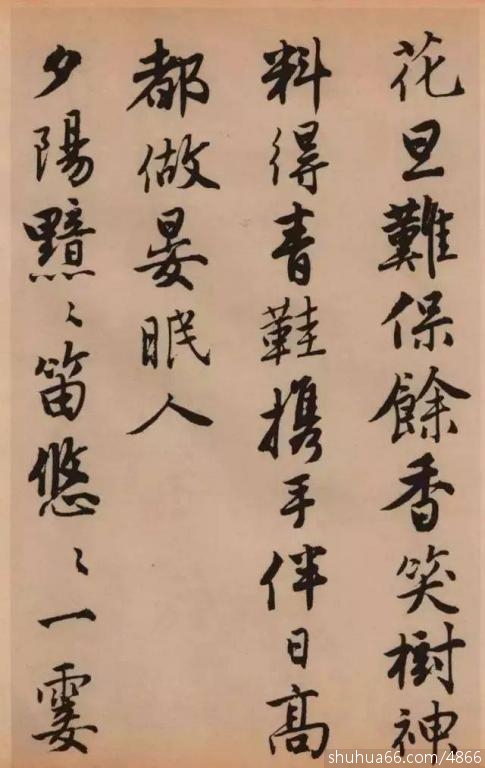 花旦難保餘香笑樹神
料得青鞋攜手伴日高
都做晏眠人
夕陽黯〻笛悠〻一霎
shuhua66.com/4866